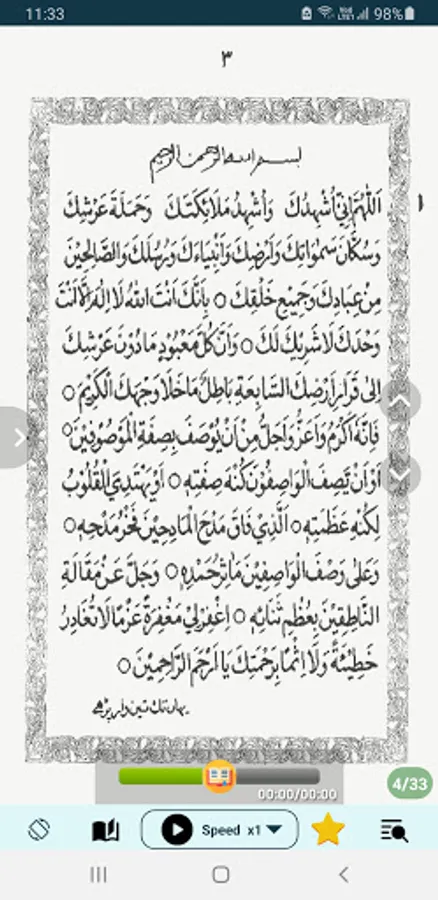 11:33
98%
٣
بسم الله الرحمن الرحيم
اَللّٰهُمَّ اِنِّيْ اُشْهِدُكَ وَاُشْهِدُ مَلَائِكَتَكَ وَحَمَلَةَ عَرْشِكَ
١
وَسُكَّانَ سَمٰوَاتِكَ وَاَرْضِكَ وَاَنْبِيَاءَكَ وَرُسُلَكَ وَالصَّالِحِيْنَ
مِنْ عِبَادِكَ وَجَمِيْعِ خَلْقِكَ ○ بِاَنَّكَ اَنْتَ اللهُ لَا اِلٰهَ اِلَّا اَنْتَ
وَحْدَكَ لَا شَرِيْكَ لَكَ ○ وَاَنَّ كُلَّ مَعْبُوْدٍ مَا دُوْنَ عَرْشِكَ
اِلىٰ قَرَارِ اَرْضِكَ السَّابِعَةِ بَاطِلٌ مَا خَلَا وَجْهَكَ الْكَرِيْمَ ○
فَاِنَّهُ اَكْرَمُ وَاَعَزُّ وَاَجَلُّ مِنْ اَنْ يُوْصَفَ بِصِفَةِ الْمَوْصُوْفِيْنَ ○
اَوْ اَنْ يَّصِفَ الْوَاصِفُوْنَ كُنْهَ صِفَتِهٖ ○ اَوْ يَهْتَدِيَ الْقُلُوْبُ
لِكُنْهِ عَظَمَتِهٖ ○ اَلَّذِيْ فَاقَ مَدْحَ الْمَادِحِيْنَ فَخْرُ مَدْحِهٖ ○
وَعَلىٰ وَصْفَ الْوَاصِفِيْنَ مَاٰثِرُ حَمْدِهٖ ○ وَجَلَّ عَنْ مَقَالَةِ
النَّاطِقِيْنَ بِعُظْمِ ثَنَائِهٖ ○ اِغْفِرْ لِيْ مَغْفِرَةً عَزْمًا لَا تُغَادِرُ
خَطِيْئَةً وَلَا اِثْمًا بِرَحْمَتِكَ يَا اَرْحَمَ الرَّاحِمِيْنَ ○
یہاں تک تین وار پڑھے
00:00/00:00
4/33
Speed x1